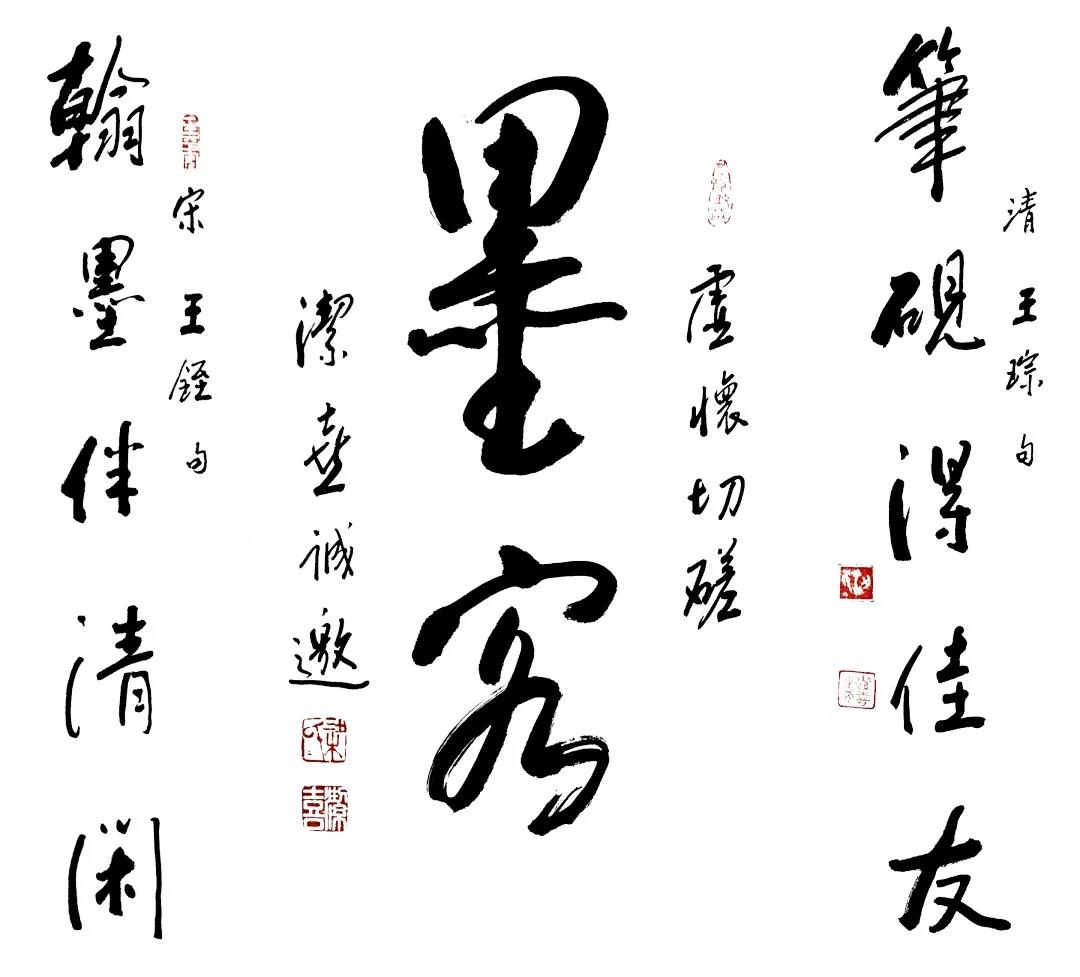 清 王琮 句
筆硯得佳友
虛懷切磋
墨客
潔喜誠邀
宋 王銍 句
翰墨伴清閑